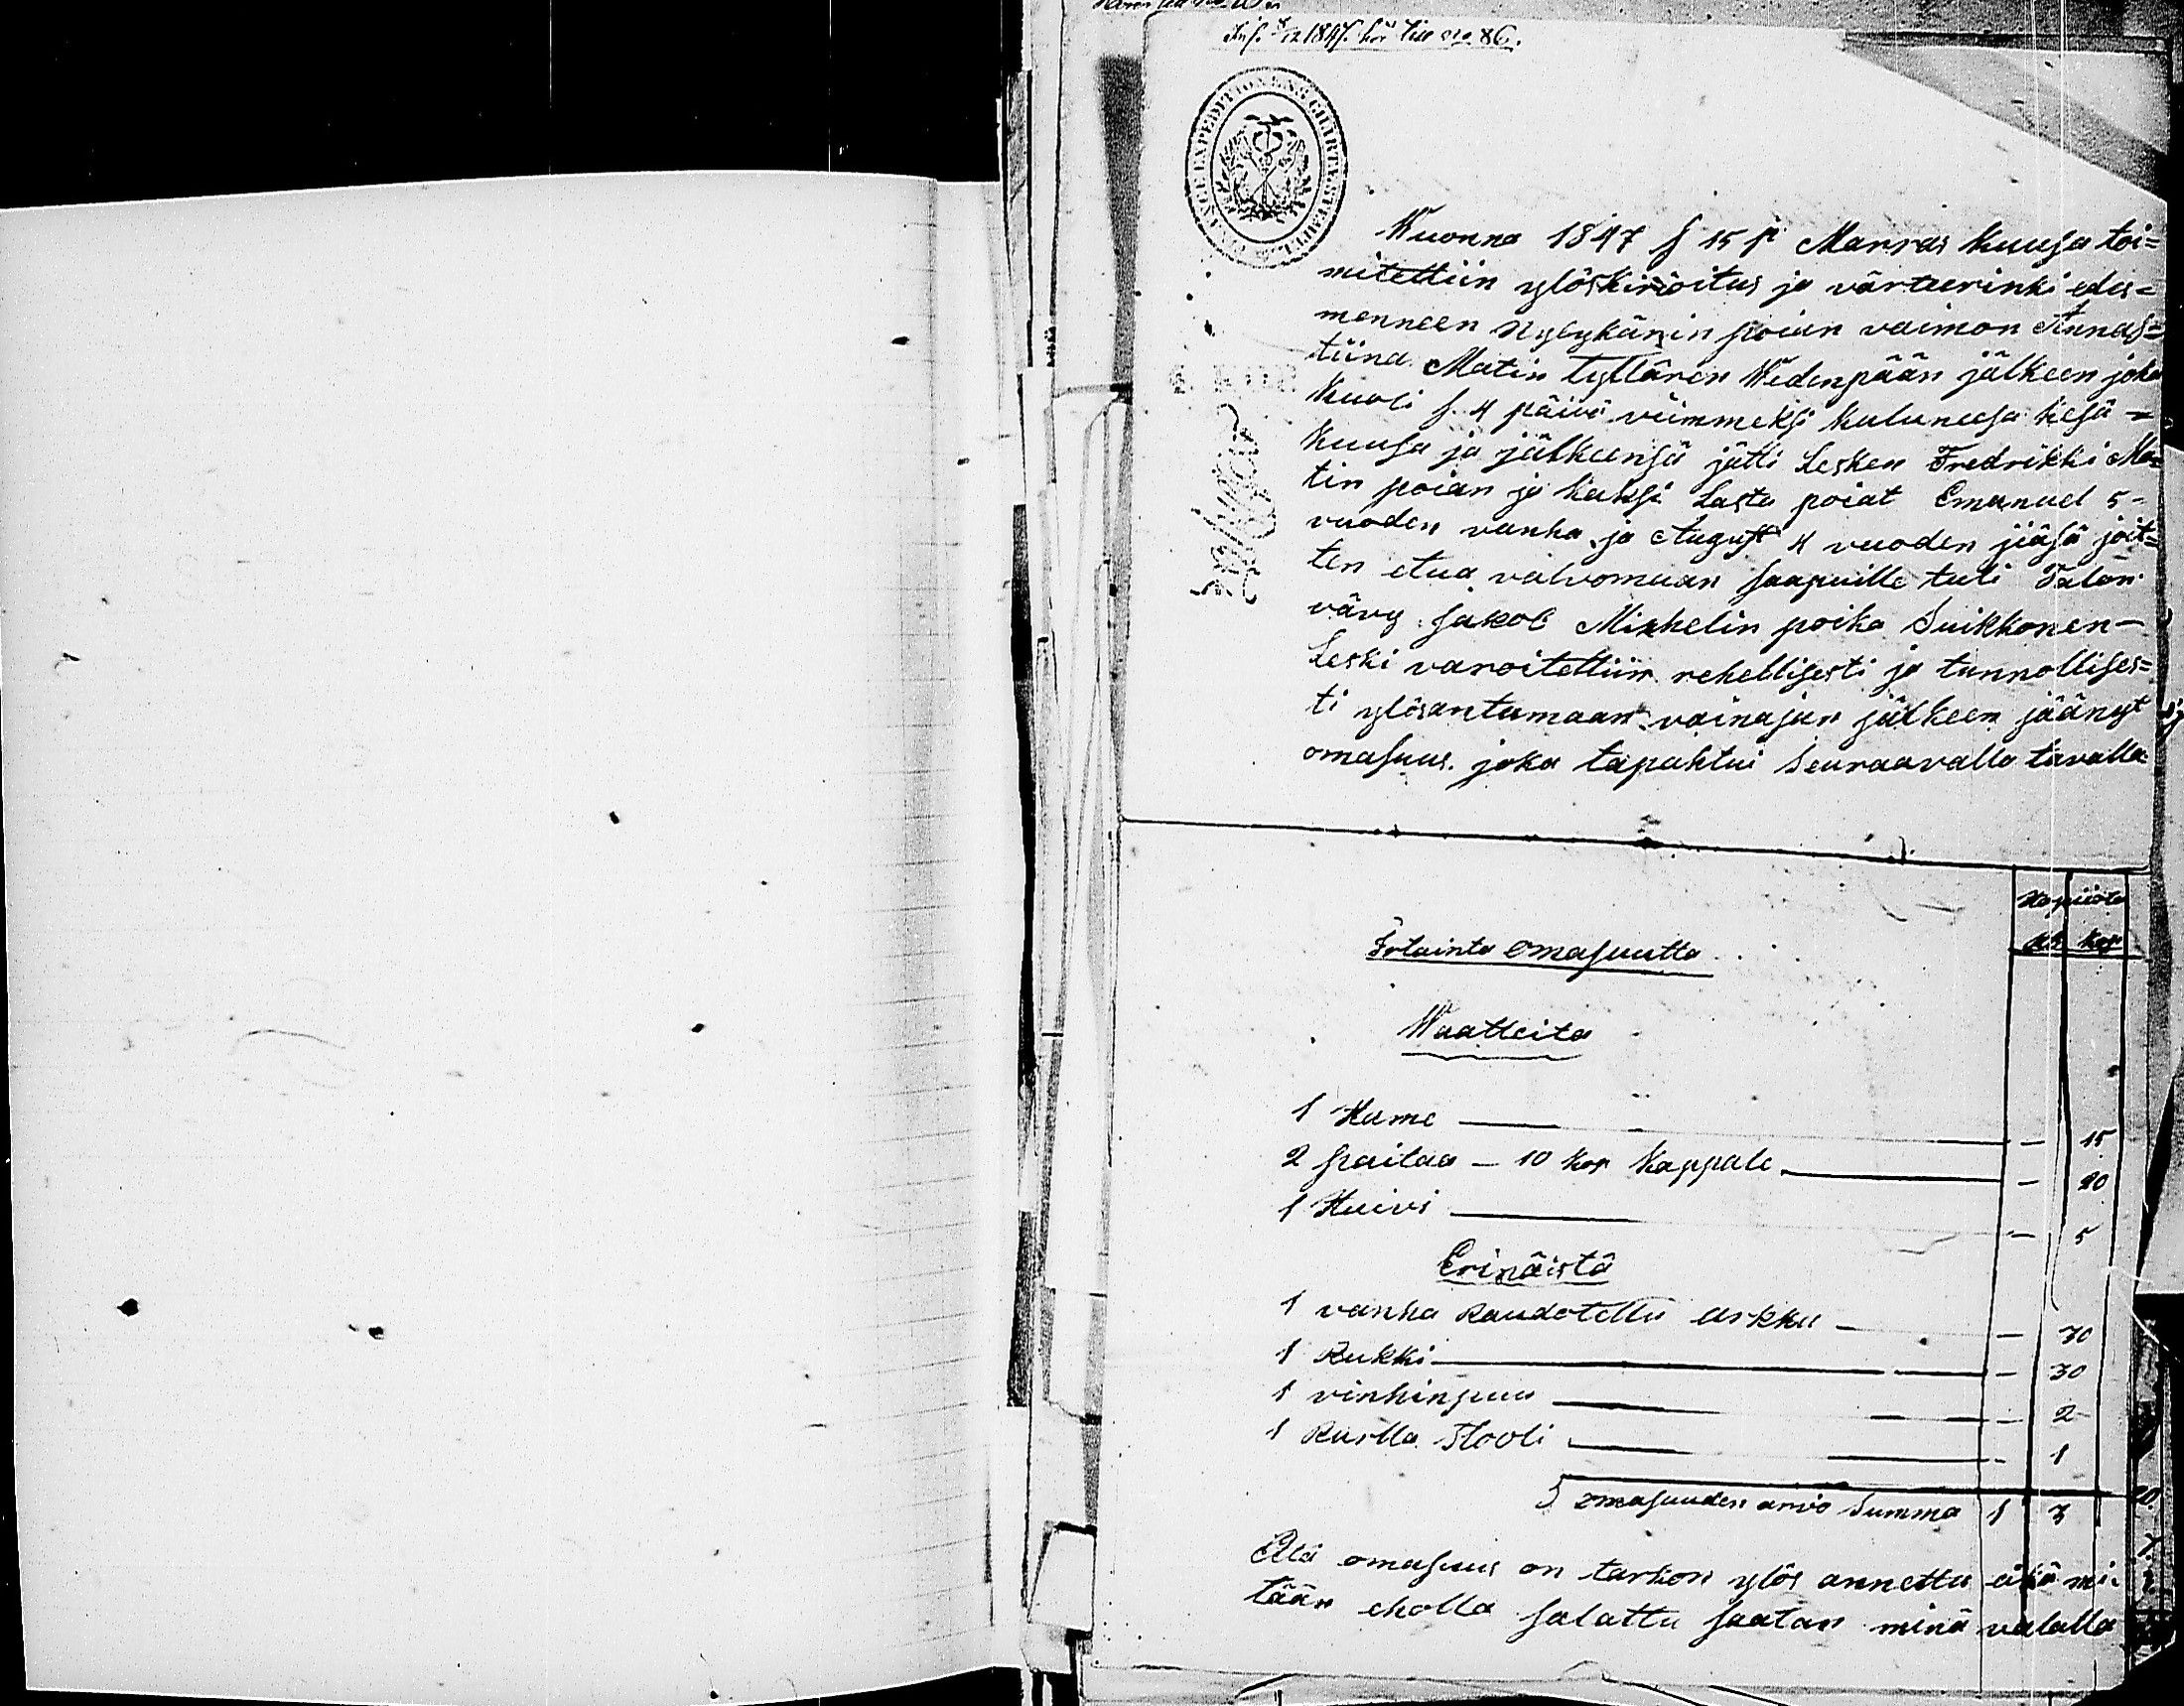 Inf. 8/12 1847. hör till No 86.
Wuonna 1847 s 15 p: Marras kuusa toi=
mitettiin ylöskirjoitus ja värteerinki edes=
menneen Nybykärin poian vaimon Annas=
tiina Matin tyttären Wedenpään jälkeen joka
kuoli s. 4 päivä viimmeksi kulunusa kesä =
kuusa ja jälkeensä jätti Lesken Fredrikki Ma=
tin poian ja kaksi Lasta poiat Emanuel 5-
vuoden vanha, ja August 4 vuoden jiäsä joit=
ten etua valvomaan saapuille tuli Talon
vävy Jakob Mikkelin poika Suikkonen —
Leski varoitettiin rehellisesti ja tunnollises=
ti ylösantamaan vainajan jälkeen jäänyt
omasuus. joka tapahtui seuraavalla tavalla
Hopiiota
Rb Kop
Irtainta omasuutta
Waatteita
1 Hame — — 15
2 paitaa — 10 kop kappale — — 20
1 Huivi — — 5
Erinäistä
1 vanha Raudotettu arkku — — 30
1 Rukki — — 30
1 vinhinpuu — — 2
1 Rulla Stooli — — 1
S omasuuden arvo Summa 1 3
Etä omasuus on tarkon ylös annettu eikä mi-
tään eholla salattu saatan minä valalla